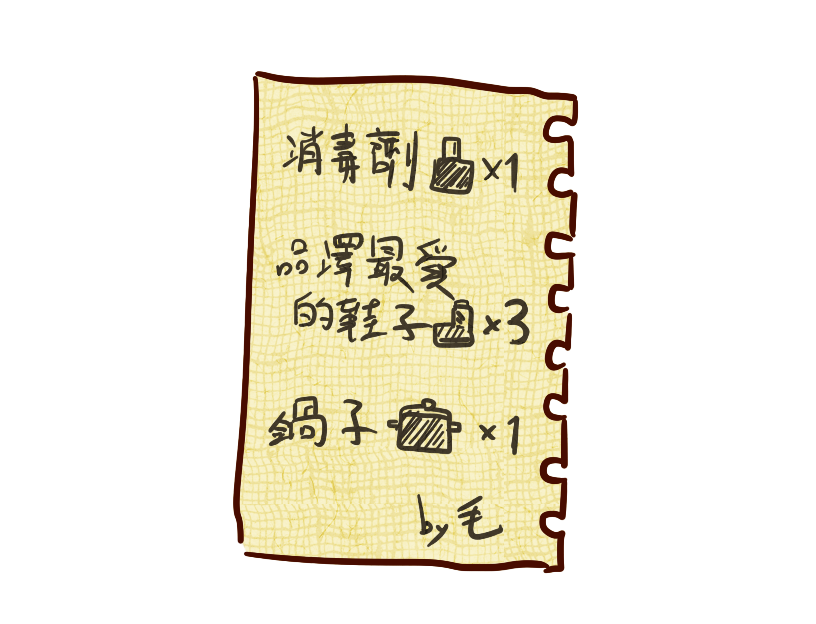 消毒劑 x1
品澤最愛
的鞋子 x3
鍋子 x1
by 毛